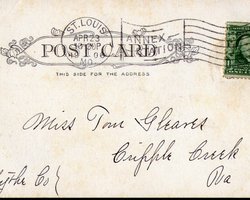 ST. LOUIS
APR 23
MO.
ANNEX
STATION
POST CARD
THIS SIDE FOR THE ADDRESS
Miss Tom Gleaves
Cripple Creek
Va